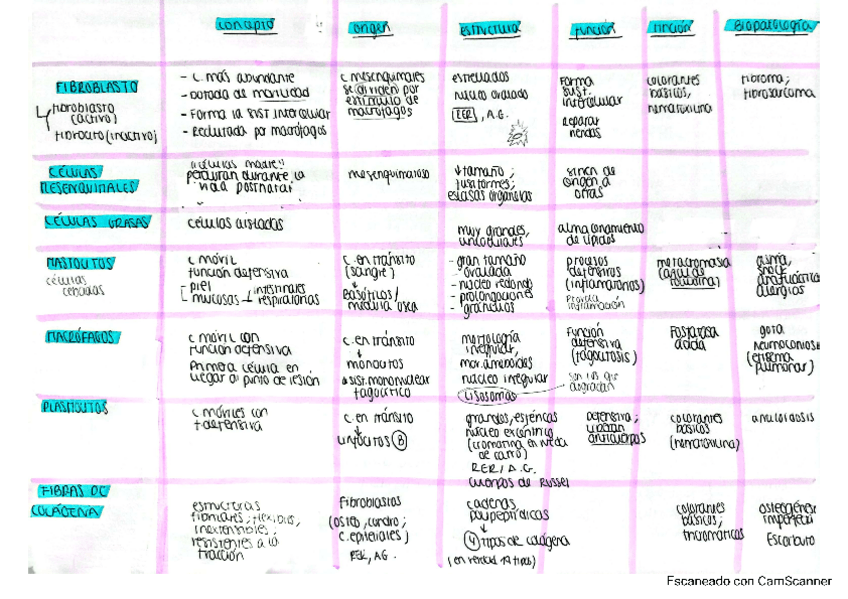 concepto origen estructura función tinción Biopatología
FIBROBLASTO
fibroblasto
(activo)
fibrocito (inactivo)
- c. más abundante
- Dotada de movilidad
- Forma la sust intercelular
- Reclutada por macrófagos
c mesenquimales
se dividen por
estímulo de
macrófagos
estrellados
núcleo ovalado
RER, A.G.
Forma
sust.
intercelular
reparar
heridas
colorantes
básicos,
hematoxilina
fibroma;
fibrosarcoma
CÉLULAS
MESENQUIMALES
"células madre"
perduran durante la
vida postnatal
mesenquimatoso
↓tamaño;
fusiformes;
escasas organelas
sirven de
origen a
otras
CÉLULAS GRASAS
células aisladas
muy grandes,
uniloculares
almacenamiento
de lípidos
MASTOCITOS
células
cebadas
c móvil
función defensiva
piel
mucosas
intestinales
respiratorias
c. en tránsito
(sangre)
↓
Basófilos/
médula ósea
- gran tamaño
ovalada
- núcleo redondo
- prolongaciones
- gránulos
procesos
defensivos
(inflamatorios)
provoca
inflamación
metacromasia
(azul de
toluidina)
asma,
shock
anafiláctico
alergias
MACRÓFAGOS
c móvil con
función defensiva
Primera célula en
llegar al punto de lesión
c. en tránsito
↓
monocitos
sist. mononuclear
fagocítico
morfología
irregular,
mov. ameboides
núcleo irregular
lisosomas
Función
defensiva
(fagocitosis)
son los que
degradan
Fosfatasa
ácida
gota
neumoconiosis
(enfisema
pulmonar)
PLASMOCITOS
c móviles con
f defensiva
c. en tránsito
↓
linfocitos B
grandes, esféricas
núcleo excéntrico
(cromatina en rueda
de carro)
RER / A.G.
cuerpos de Russel
defensiva;
liberan
anticuerpos
colorantes
básicos
(hematoxilina)
amiloidosis
FIBRAS DE
COLÁGENA
estructuras
fibrilares; flexibles,
inextensibles;
resistentes a la
tracción
Fibroblastos
(osteo, condro;
c. epiteliales)
RER, AG.
cadenas
polipeptídicas
↓
4 tipos de colágena
(en realidad 19 tipos)
colorantes
básicos;
tricromáticos
osteogénesis
imperfecta
Escorbuto
Escaneado con CamScanner